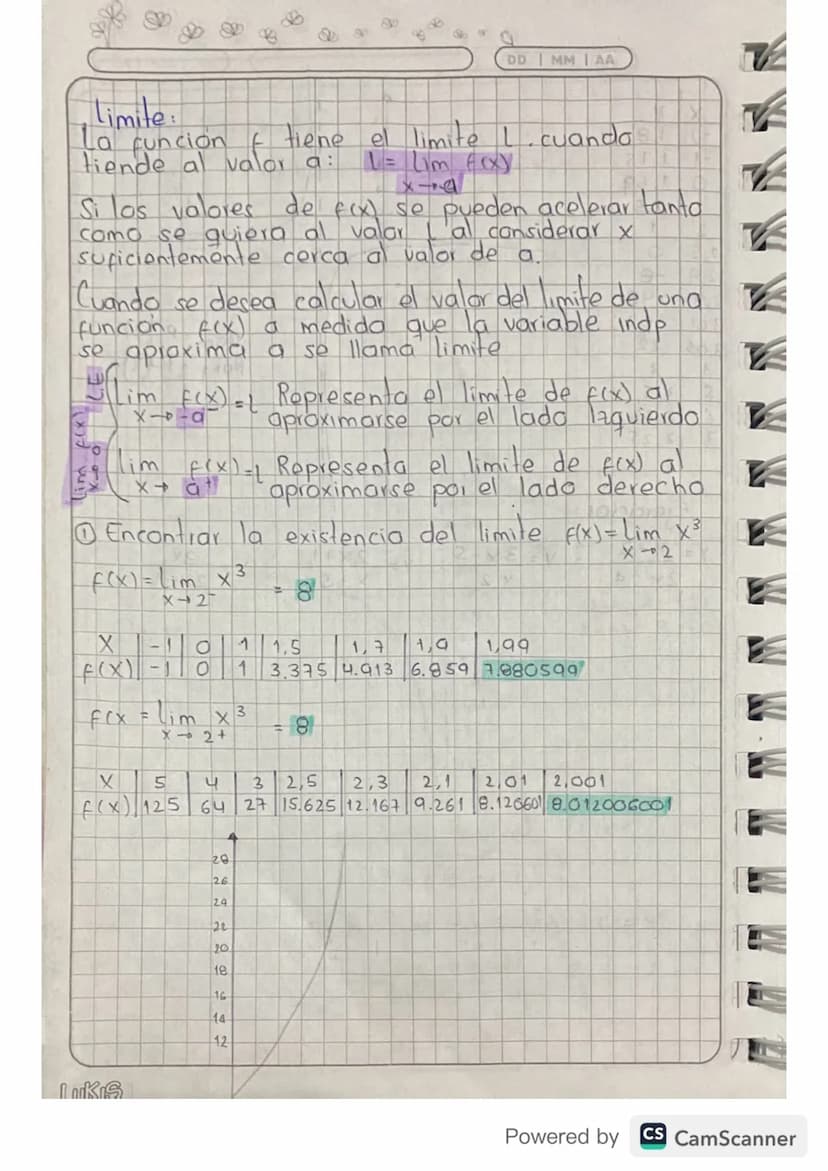 DD | MM | AA
Limite:
La función f tiene el limite L. cuando
tiende al valor a: L = lim f(x)
x→a
Si los valores de f(x) se pueden acelerar tanto
como se quiera al valor L al considerar x
suficientemente cerca al valor de a.
Cuando se desea calcular el valor del limite de una
función f(x) a medida que la variable indp
se aproxima a se llama limite
lim f(x) = L Representa el limite de f(x) al
x→-a⁻ aproximarse por el lado Izquierdo
lim f(x)
lim f(x) = L Representa el limite de f(x) al
x→a⁺ aproximarse por el lado derecho
① Encontrar la existencia del limite f(x) = lim x³
x→2
f(x) = lim x³ = 8
x→2⁻
x | -1 | 0 | 1 | 1,5 | 1,7 | 1,9 | 1,99
f(x) | -1 | 0 | 1 | 3.375 | 4.913 | 6.859 | 7.880599
f(x = lim x³ = 8
x→2+
x | 5 | 4 | 3 | 2,5 | 2,3 | 2,1 | 2,01 | 2,001
f(x) | 125 | 64 | 27 | 15.625 | 12.167 | 9.261 | 8.120601 | 8.012006001
28
26
24
22
20
18
16
14
12
LUKIS
Powered by CS CamScanner